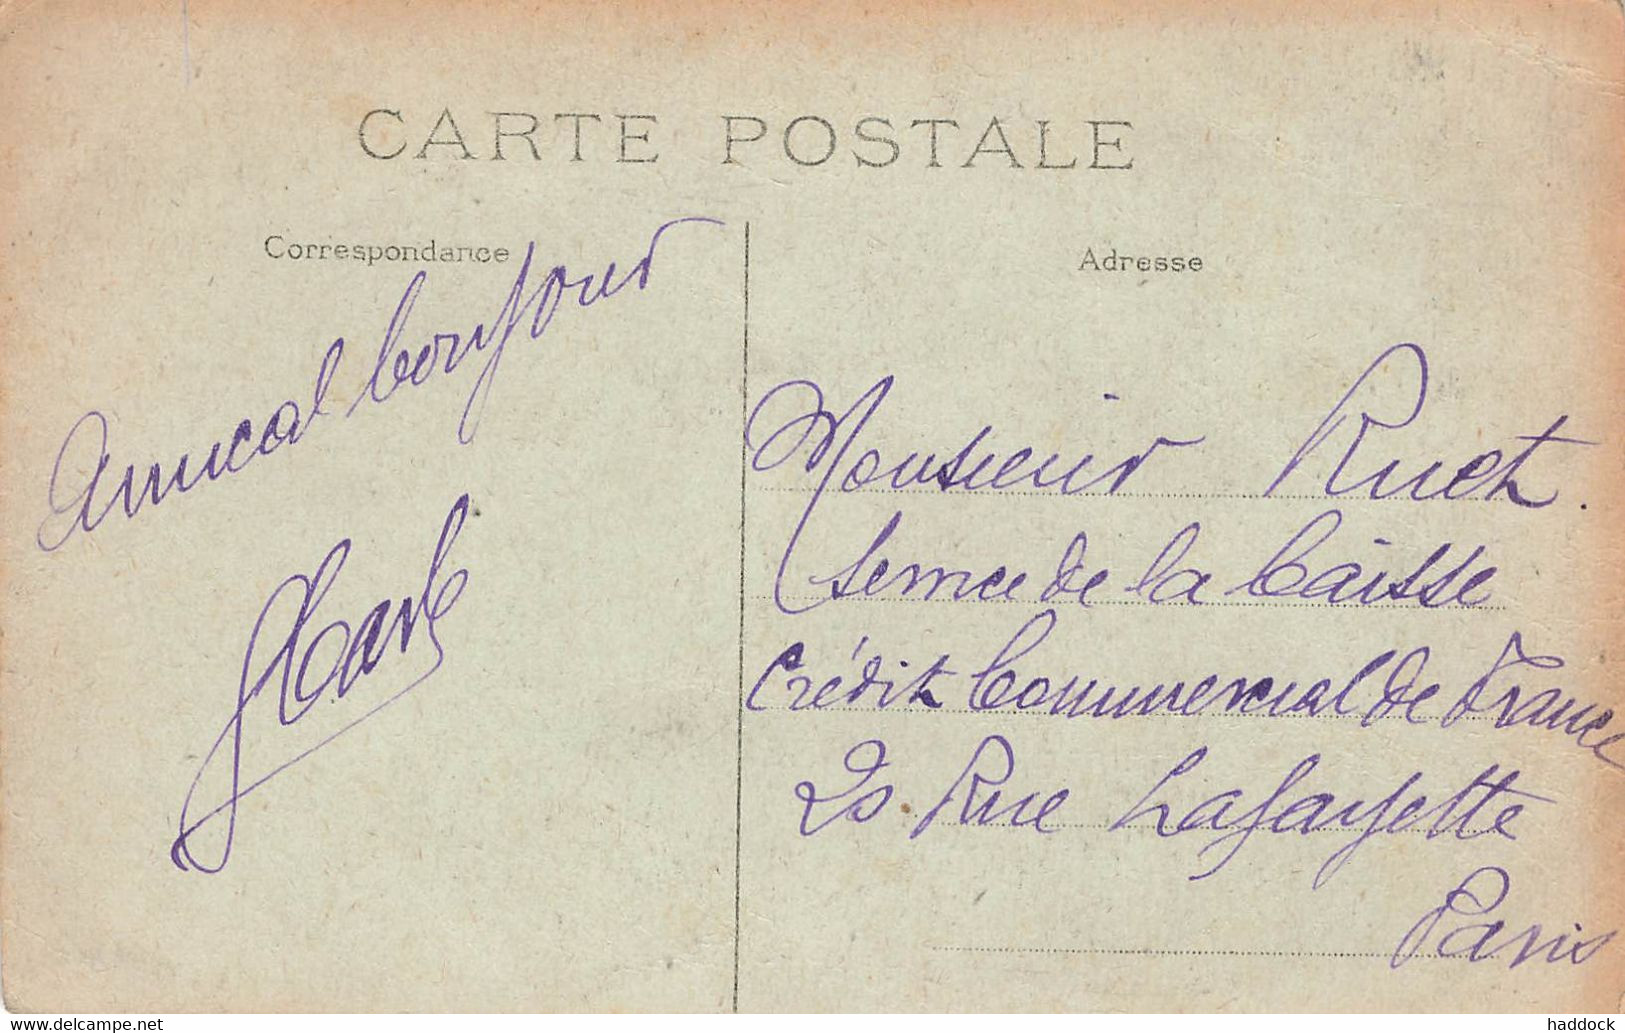 CARTE POSTALE
Correspondance
Adresse
Amical bonjour
Monsieur Ruet.
Service de la Caisse
Crédit Commercial de France
20 Rue Lafayette
Paris
www.delcampe.net
haddock